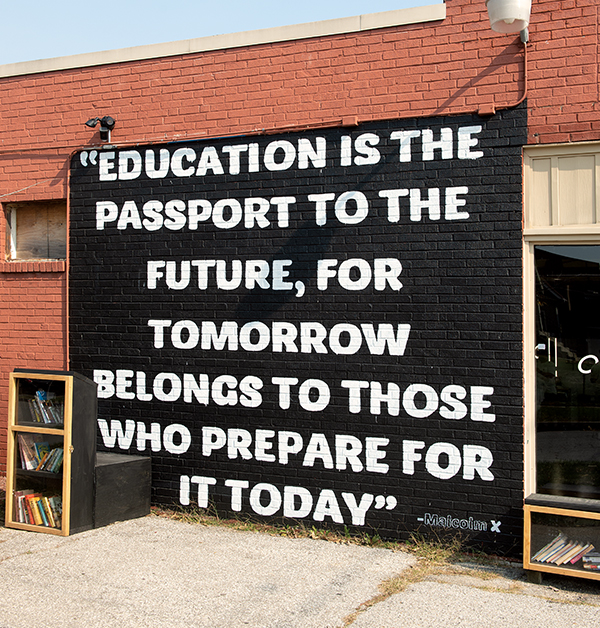 “EDUCATION IS THE
PASSPORT TO THE
FUTURE, FOR
TOMORROW
BELONGS TO THOSE
WHO PREPARE FOR
IT TODAY”
-Malcolm X